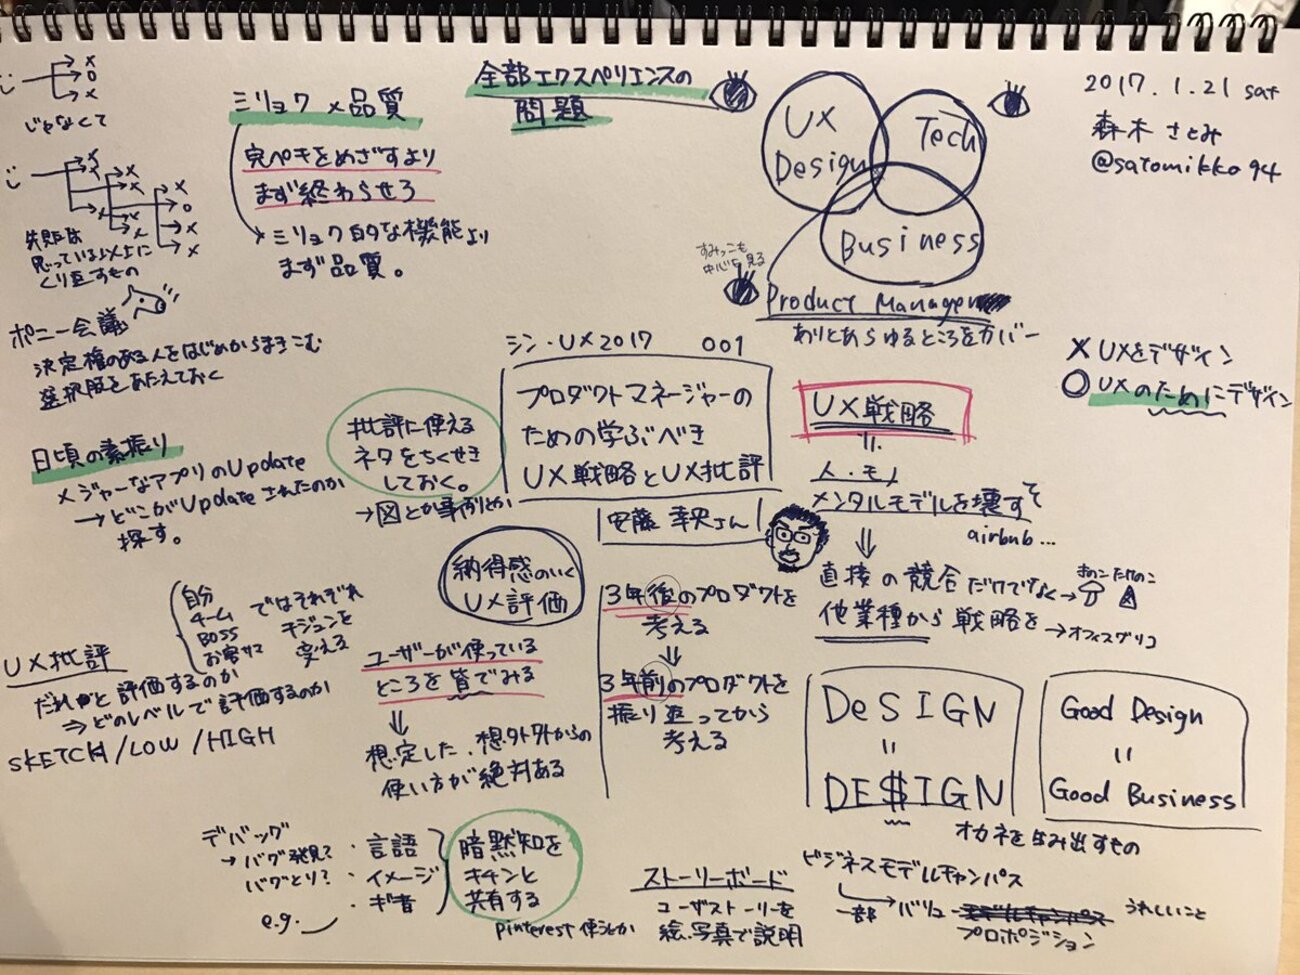 2017.1.21 sat
森木 さとみ
@satomikko94
全部エクスペリエンスの
問題
UX
Design
Tech
Business
すみっこも
中心も見る
Product Manager
ありとあらゆるところをカバー
× UXをデザイン
○ UXのためにデザイン
じゃなくて
失敗は
思っている以上に
くり返すもの
ミリョク × 品質
完ペキをめざすより
まず終わらせろ
ミリョク的な機能より
まず品質。
ポニー会議
決定権のある人をはじめからまきこむ
選択肢をあたえておく
日頃の素振り
メジャーなアプリのUpdate
→どこがUpdateされたのか
探す。
シン・UX2017 001
プロダクトマネージャーの
ための学ぶべき
UX戦略とUX批評
安藤 幸央さん
批評に使える
ネタをちくせき
しておく。
→図とか事例とか
UX戦略
=
人・モノ
メンタルモデルを壊すそ
airbnb...
⇓
直接の競合だけでなく→
きのこたけのこ
他業種から戦略を
→オフィスグリコ
納得感のいく
UX評価
ユーザーが使っている
ところを皆でみる
⇓
想定した、想外からの
使い方が絶対ある
3年後のプロダクトを
考える
⇓
3年前のプロダクトを
振り返ってから
考える
UX批評
自分
チーム
BOSS
お客サマ
ではそれぞれ
キジュンを
変える
だれがと評価するのか
⇒どのレベルで評価するのか
SKETCH/LOW/HIGH
DeSIGN
=
DE$IGN
オカネを生み出すもの
Good Design
=
Good Business
デバッグ
→バグ発見?
バグとり?
e.g.
・言語
・イメージ
・ギ音
暗黙知を
キチンと
共有する
pinterest使うとか
ストーリーボード
ユーザストーリーを
絵、写真で説明
ビジネスモデルキャンパス
一部 バリュー
プロポジション
うれしいこと